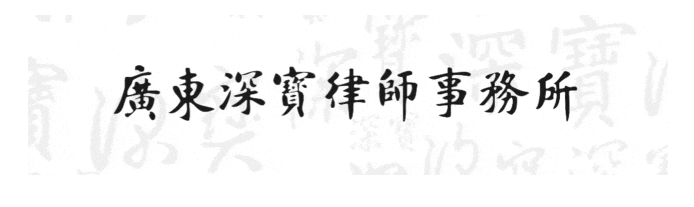 廣東深寶律師事務所